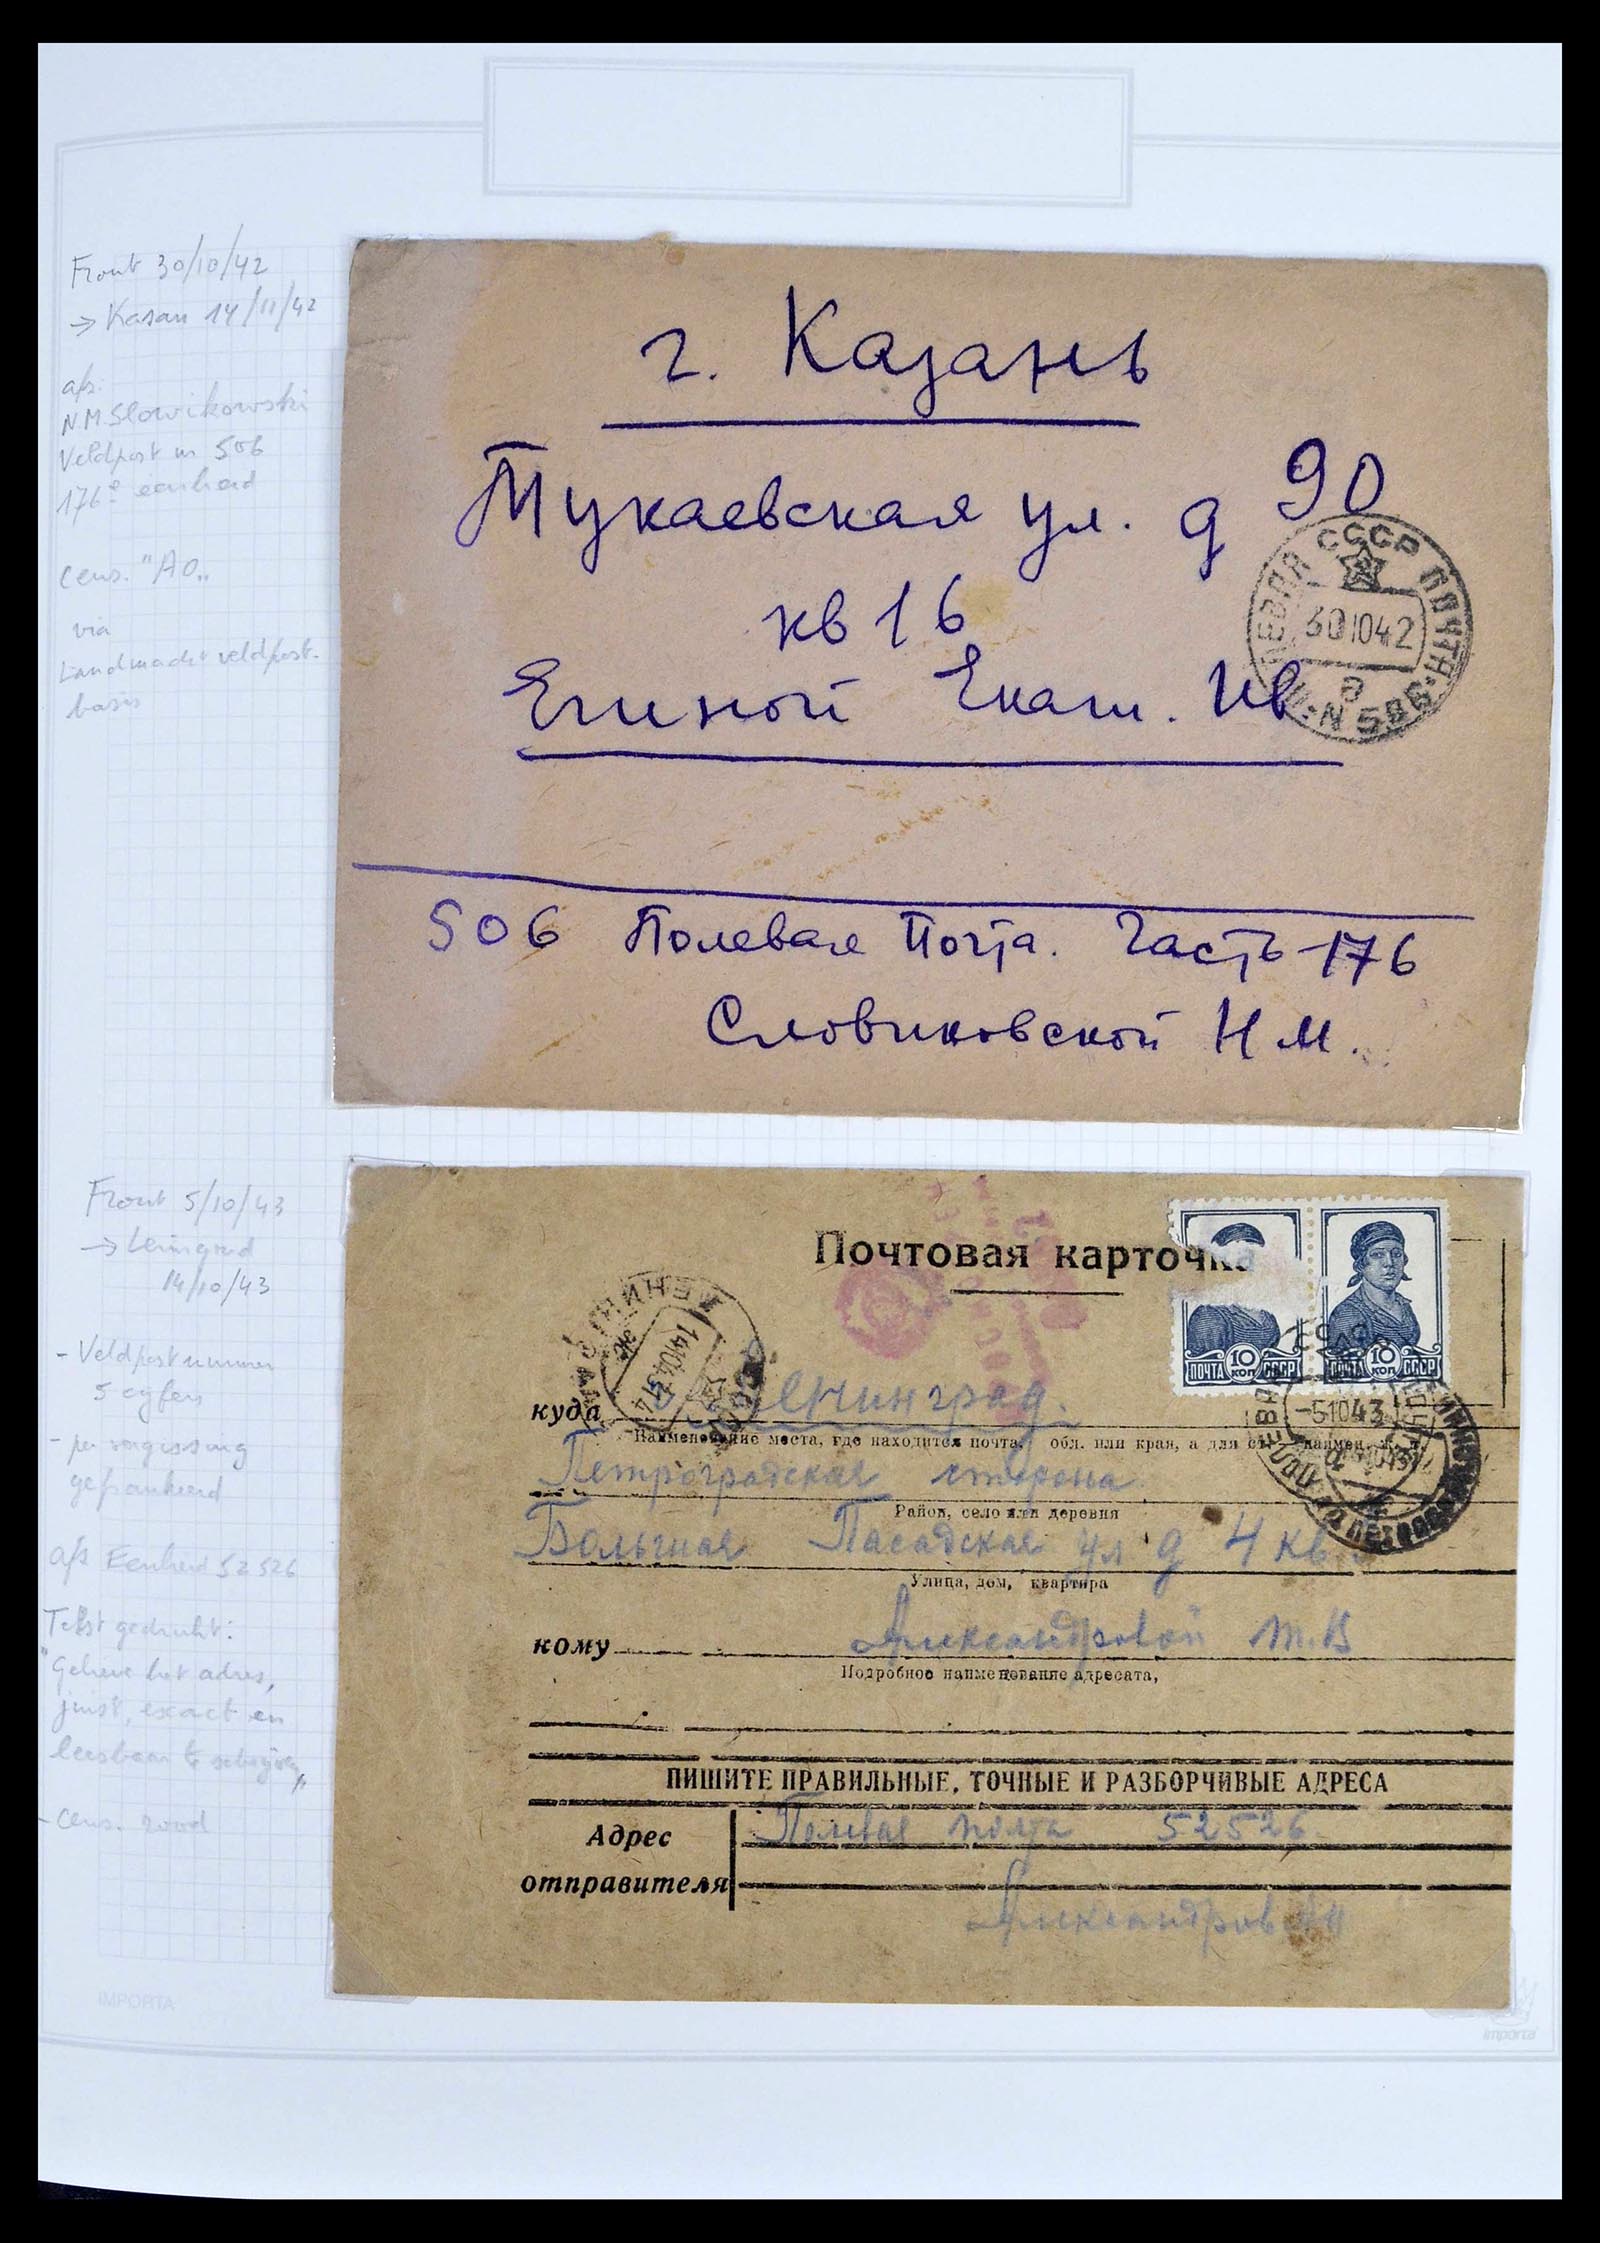 Front 30/10/42
→ Kasan 14/11/42
afz.
N.M. Slowikowski
Veldpost nr 506
176e eenheid
cens. "AO"
via
Landmacht veldpost-
basis
г. Казань
Тукаевская ул. д 90
кв 16
Екат. Ив
СССР
30 10 42
506 Полевая Почта. Часть-176
Словиковской Н М.
Front 5/10/43
→ Leningrad
14/10/43
- Veldpostnummer
5 cijfers
- per vergissing
gefrankeerd
afz Eenheid 52526
Tekst gedrukt:
"Gelieve het adres,
juist, exact en
leesbaar te schrijven"
- Cens. rood
Почтовая карточка
ПОЧТА 10 КОП СССР
ПОЧТА 10 КОП СССР
-5 10 43
куда Ленинград.
Наименование места, где находится почта, обл. или края, а для
Петроградская сторона
Район, село или деревня
Большая Пасадская ул д 4 кв
Улица, дом, квартира
кому Александровой Т. В
Подробное наименование адресата,
ПИШИТЕ ПРАВИЛЬНЫЕ, ТОЧНЫЕ И РАЗБОРЧИВЫЕ АДРЕСА
Адрес
отправителя
Полевая почта 52526.
Александров
IMPORTA
importa